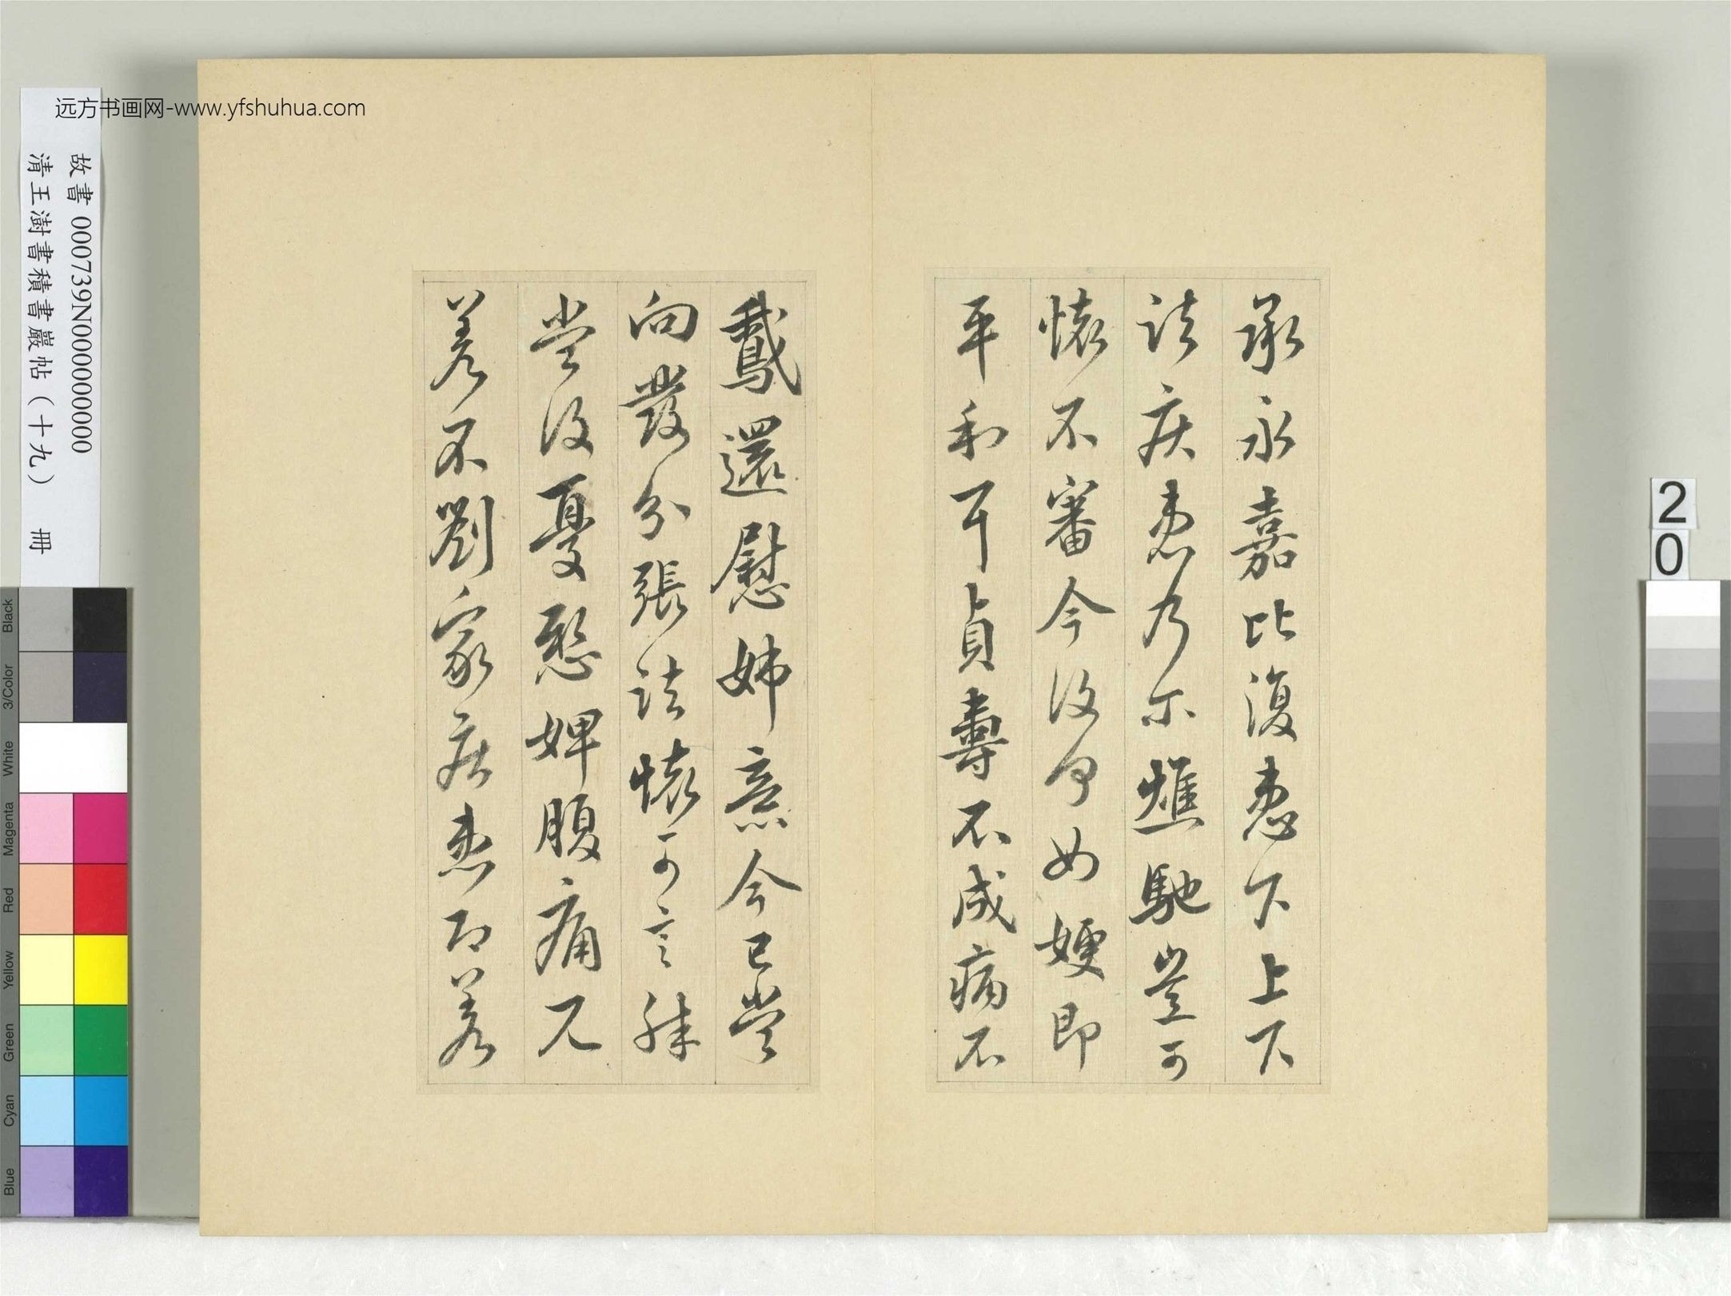 承永嘉比復患下上下
諸疾患乃尓燋馳豈可
懷不審今復何如嫂即
平和耳貞壽不成病不
鵞還慰姊意今已當
向發分張諸懷可言殊
當復憂愍婢腹痛兄
差不劉家疾患即差
远方书画网-www.yfshuhua.com
故書 000739N000000000
清王澍書積書巖帖（十九） 冊
20
Black
3/Color
White
Magenta
Red
Yellow
Green
Cyan
Blue